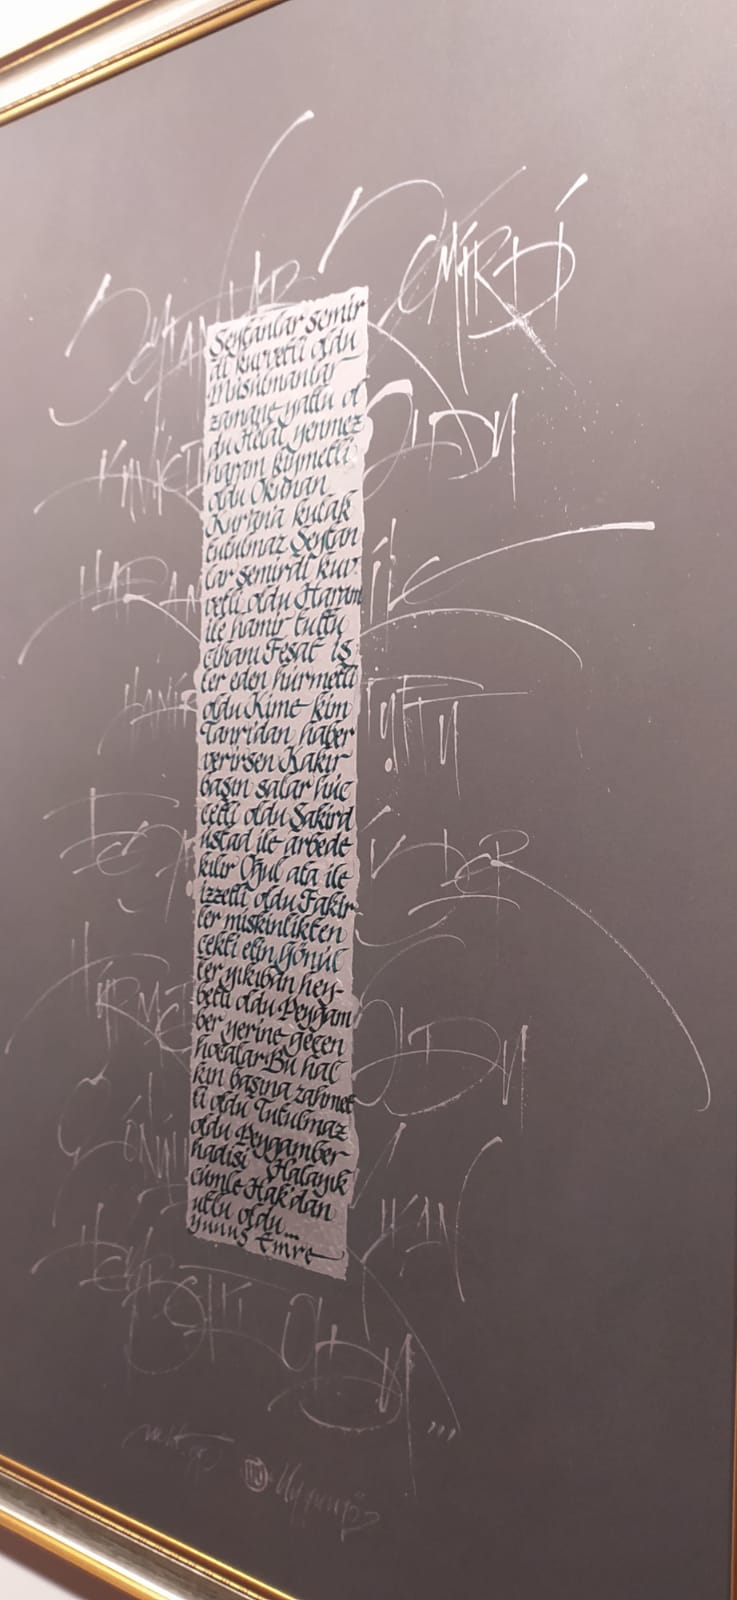 ŞEYTANLAR SEMİRDİ
KUVVETLİ OLDU
HARAM İLE
HAMİR TUTTU
FESAT İŞLER EDEN
HÜRMETLİ OLDU
GÖNÜLLER YIKAN
HEYBETLİ OLDU...
Şeytanlar semir
di kuvvetli oldu
Müslümanlar
zamane yatlu ol
du Helal yenmez
haram kıymetli
oldu Okunan
Kur'ana kulak
tutulmaz Şeytan
lar semirdi kuv
vetli oldu Haram
ile hamir tuttu
cihanı Fesat iş
ler eden hürmetli
oldu Kime kim
Tanrı'dan haber
verirsen Kakır
başın salar hüc
cetli oldu Şakird
üstad ile arbede
kılır Oğul ata ile
izzetli oldu Fakir
ler miskinlikten
çekti elin Gönül
ler yıkıban hey-
betli oldu Peygam
ber yerine geçen
hocalar Bu hal
kın başına zahmet
li oldu Tutulmaz
oldu Peygamber
hadisi Halayık
cümle Hak'dan
utlu oldu...
Yunus Emre